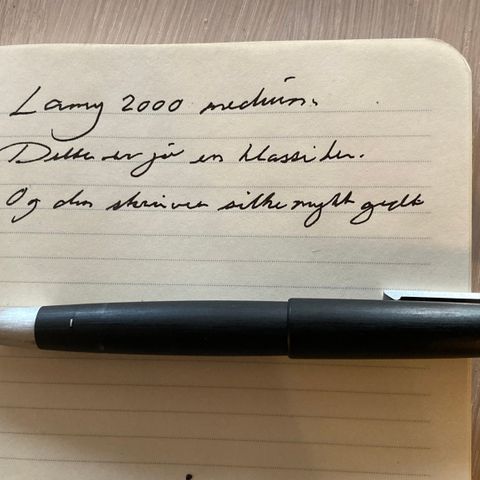 Lamy 2000 medium.
Dette er jo en klassiker.
Og den skriver silkemykt